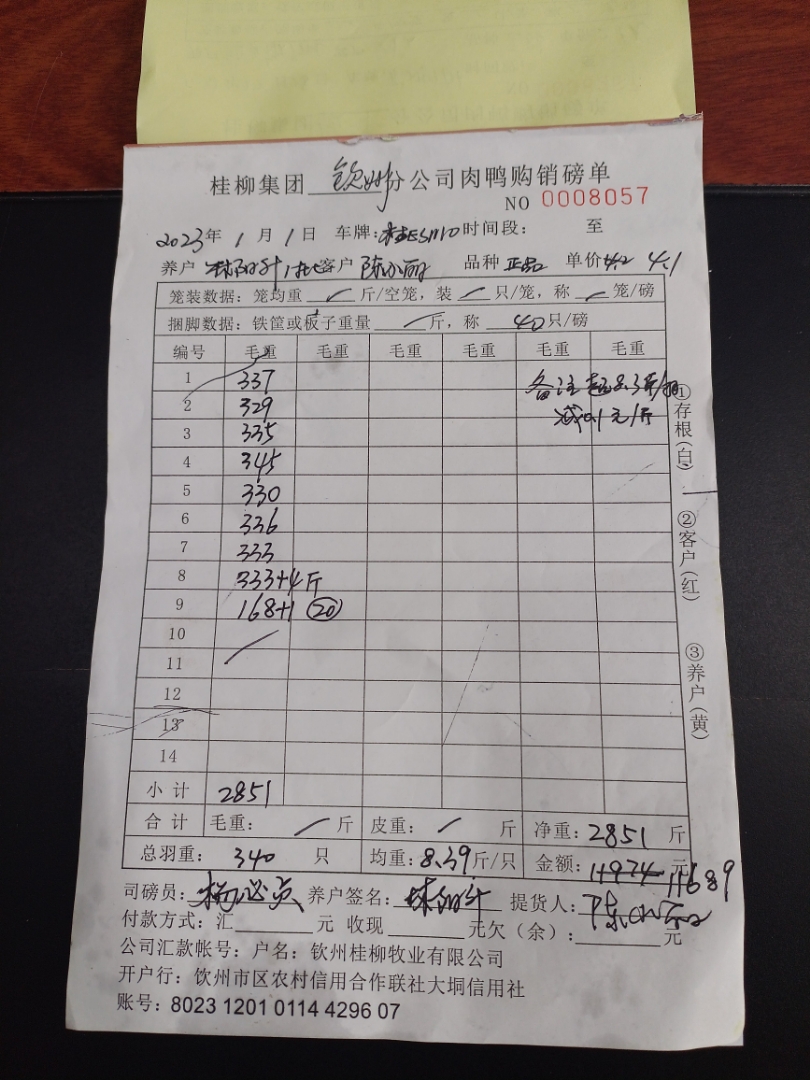 桂柳集团 钦州 分公司肉鸭购销磅单
NO 0008057
2023年 1月 1日 车牌: 时间段: 至
养户 客户 陈小丽 品种 正品 单价 4.2 4.1
笼装数据: 笼均重 / 斤/空笼, 装 / 只/笼, 称 / 笼/磅
捆脚数据: 铁筐或板子重量 / 斤, 称 40 只/磅
编号 毛重 毛重 毛重 毛重 毛重 毛重
1 337 备注 超8.3斤/只
2 329 减0.1元/斤
3 335
4 345
5 330
6 336
7 333
8 333+4斤
9 168+1 20
10
11
12
13
14
小计 2851
合计 毛重: / 斤 皮重: / 斤 净重: 2851 斤
总羽重: 340 只 均重: 8.39斤/只 金额: 11974 元 11689
司磅员: 养户签名: 提货人: 陈小丽
付款方式: 汇 元 收现 元欠(余): 元
公司汇款帐号: 户名: 钦州桂柳牧业有限公司
开户行: 钦州市区农村信用合作联社大垌信用社
账号: 8023 1201 0114 4296 07
①存根(白)
②客户(红)
③养户(黄)